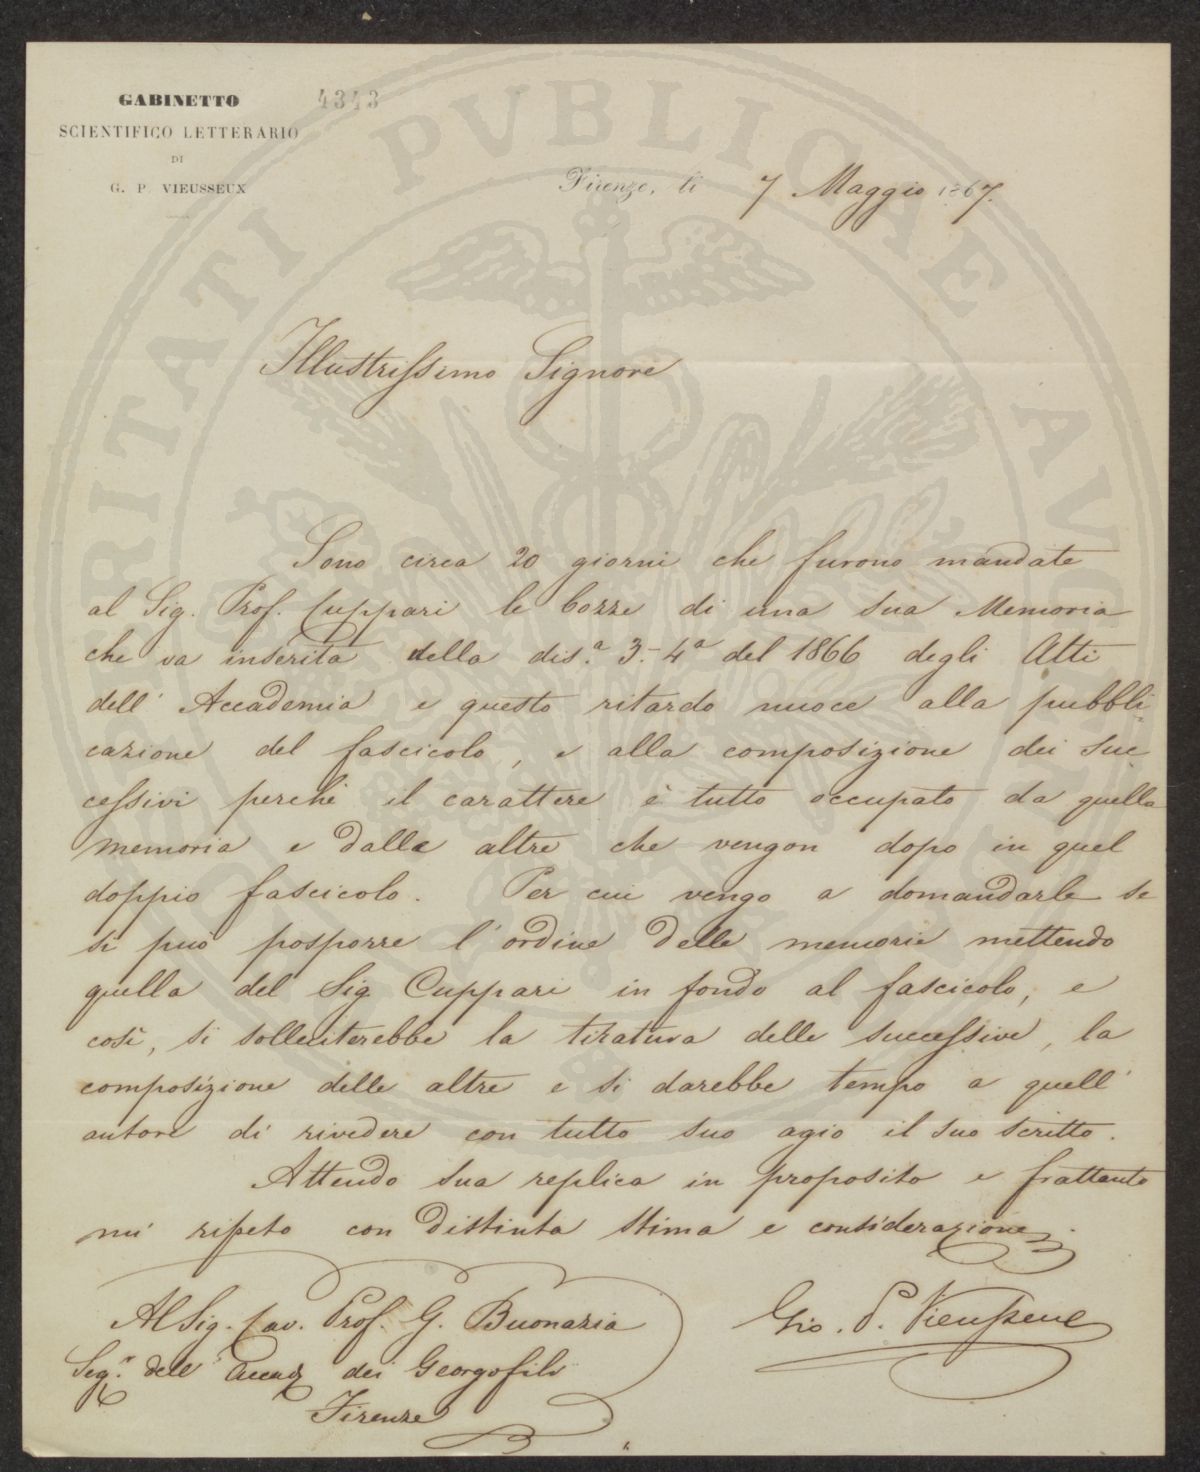 GABINETTO
SCIENTIFICO LETTERARIO
DI
G. P. VIEUSSEUX
4343
Firenze, li 7 Maggio 1867.
PUBLICAE
Illustrissimo Signore
Sono circa 20 giorni che furono mandate
al Sig. Prof. Cuppari le bozze di una sua Memoria
che va inserita nella dis.a 3.-4a del 1866 degli Atti
dell' Accademia e questo ritardo nuoce alla pubbli
cazione del fascicolo, e alla composizione dei suc
cessivi perchè il carattere è tutto occupato da quella
memoria e dalle altre che vengon dopo in quel
doppio fascicolo. Per cui vengo a domandarle se
si può posporre l'ordine delle memorie mettendo
quella del Sig Cuppari in fondo al fascicolo, e
così, si solleciterebbe la tiratura delle successive, la
composizione delle altre e si darebbe tempo a quell'
autore di rivedere con tutto suo agio il suo scritto.
Attendo sua replica in proposito e frattanto
mi ripeto con distinta stima e considerazione
Gio. P. Vieusseux
Al Sig. Cav. Prof. G. Buonazia
Seg.o dell' Accad dei Georgofili
Firenze